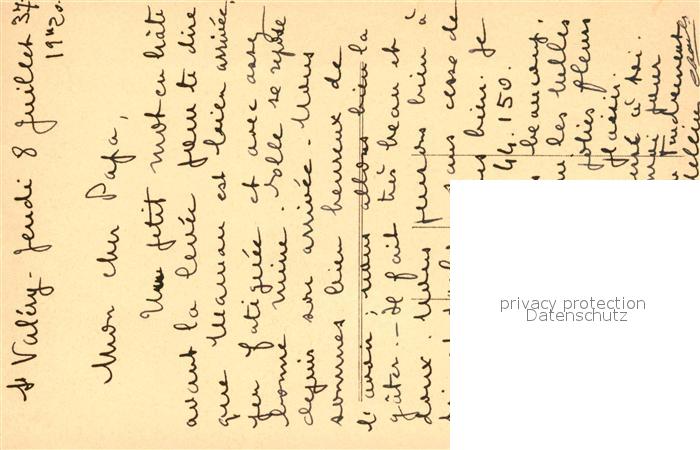 St Valéry - Jeudi 8 Juillet 37
19h20.
Mon cher Papa,
Un petit mot en hâte
avant la levée pour te dire
que Maman est bien arrivée,
peu fatiguée et avec assez
bonne mine. Elle se repose
depuis son arrivée. Nous
sommes bien heureux de
l'avoir; nous allons bien la
gâter. - Il fait très beau et
doux. Nous pensons bien à
sans cesse de
bien. Je
44.150.
beaucoup,
les belles
jolies fleurs
plaisir.
à toi.
pour
Tendrement
privacy protection
Datenschutz